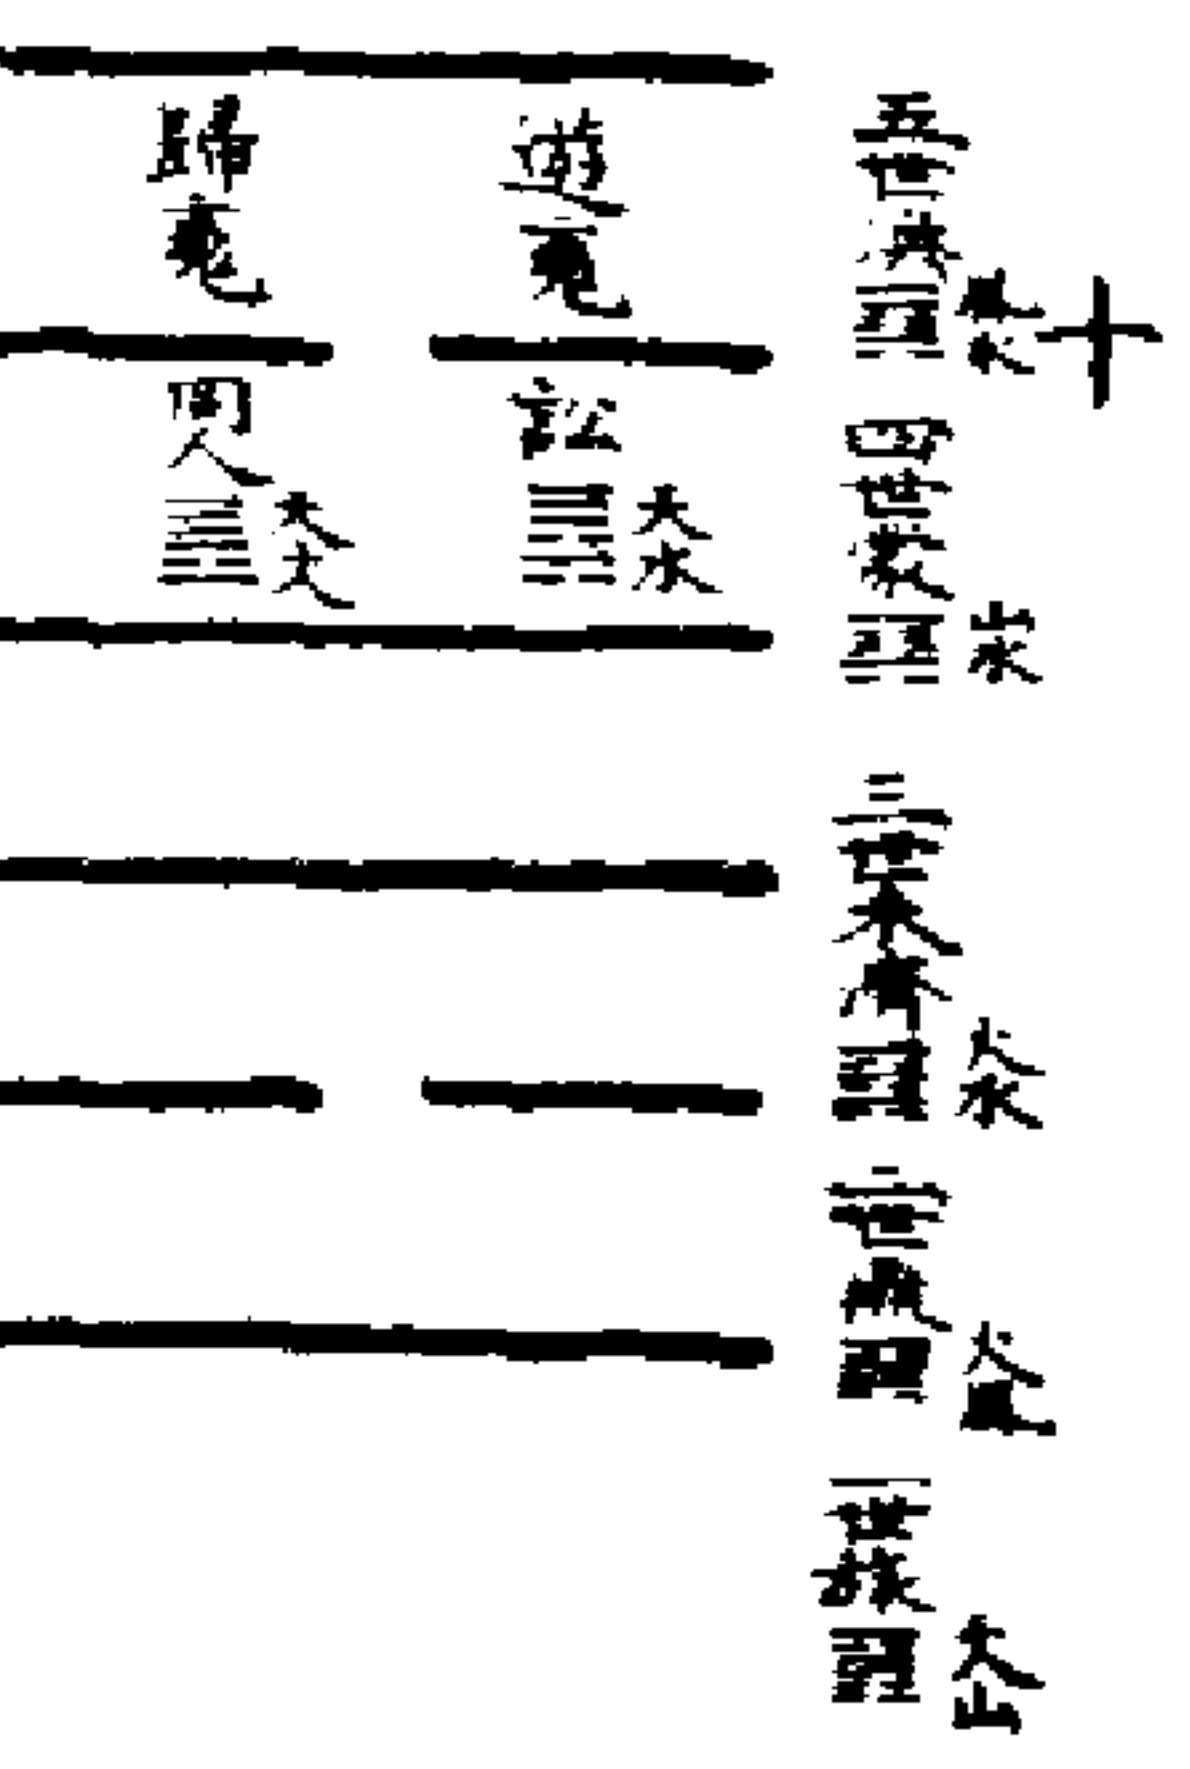 十
五世渙䷺風水
四世蒙䷃山水
三世未濟䷿火水
二世鼎䷱火風
一世旅䷷火山
遊魂
訟䷅天水
歸魂
同人䷌天火